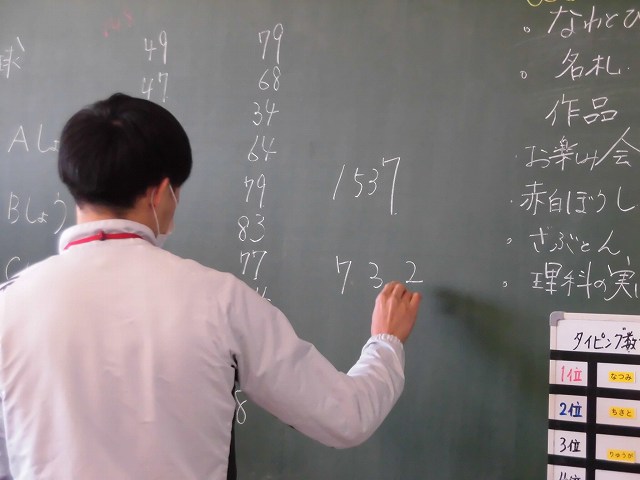 球 49 79
47 68
34
Aしょ 64
79
Bしょう 83
C 77
8
1537
7 3 2
。なわとび
。名札
作品
・お楽しみ会
・赤白ぼうし
。ざぶとん
。理科の実
タイピング数
1位 なつみ
2位 ちさと
3位 りゅうが
4位